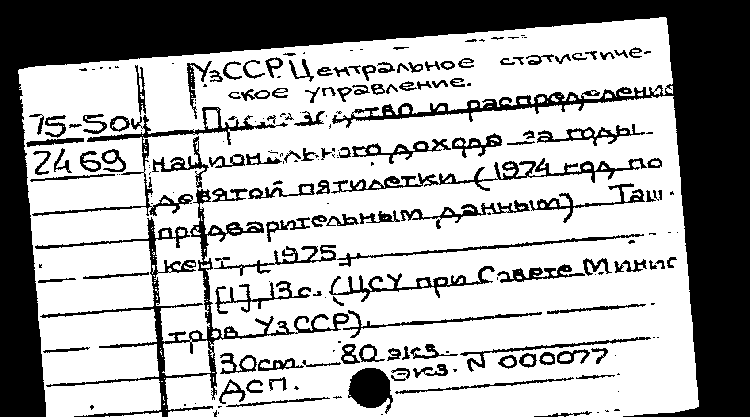 УзССР. Центральное статистиче-
ское управление.
75-50к
Производство и распределение
2469
национального дохода за годы
девятой пятилетки (1974 год, по
предварительным данным). Таш-
кент, [1975].
[1], 13 с. (ЦСУ при Совете Минис
тров УзССР).
30см. 80 экз.
ДСП. Экз. N 000077